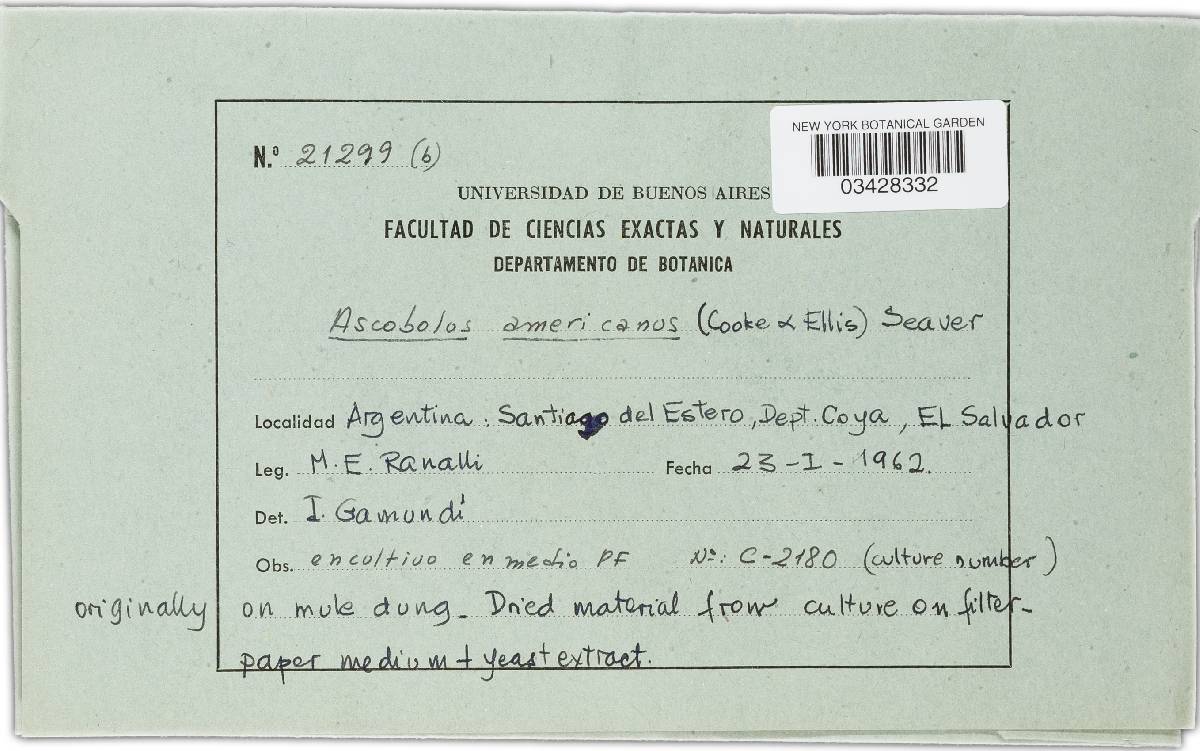 NEW YORK BOTANICAL GARDEN
03428332
N.º 21299 (b)
UNIVERSIDAD DE BUENOS AIRES
FACULTAD DE CIENCIAS EXACTAS Y NATURALES
DEPARTAMENTO DE BOTANICA
Ascobolus americanus (Cooke & Ellis) Seaver
Localidad Argentina: Santiago del Estero, Dept. Coya, EL Salvador
Leg. M. E. Ranalli Fecha 23-I-1962.
Det. I. Gamundí
Obs. en cultivo en medio PF Nº: C-2180 (culture number)
originally on mule dung_ Dried material from culture on filter-
paper medium + yeast extract.